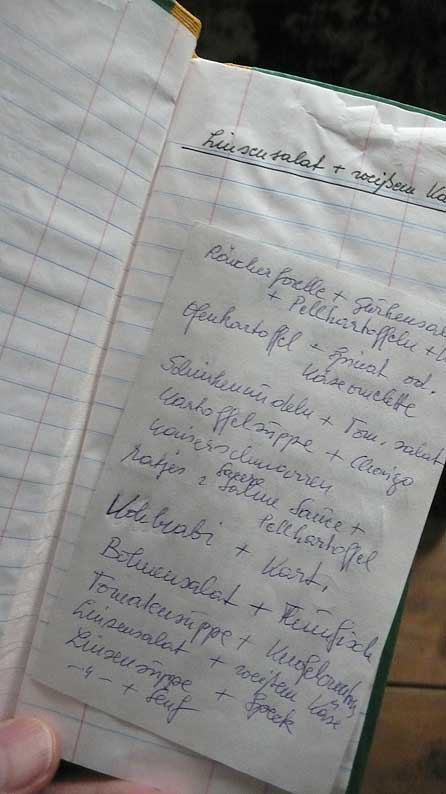 Linsensalat + weißem Kä
Räucherforelle + Gurkensal
+ Pellkartoffeln +
Ofenkartoffel + Spinat od.
Käseomelette
Schinkennudeln + Tom. salat
Kartoffelsuppe + Chorizo
Kaiserschmarren
Matjes Sahne Sauce +
Pellkartoffel
Kohlrabi + Kart.
Bohnensalat + Thunfisch
Tomatensuppe +
Linsensalat + weißem Käse
Linsensuppe + Speck
-"- + Senf